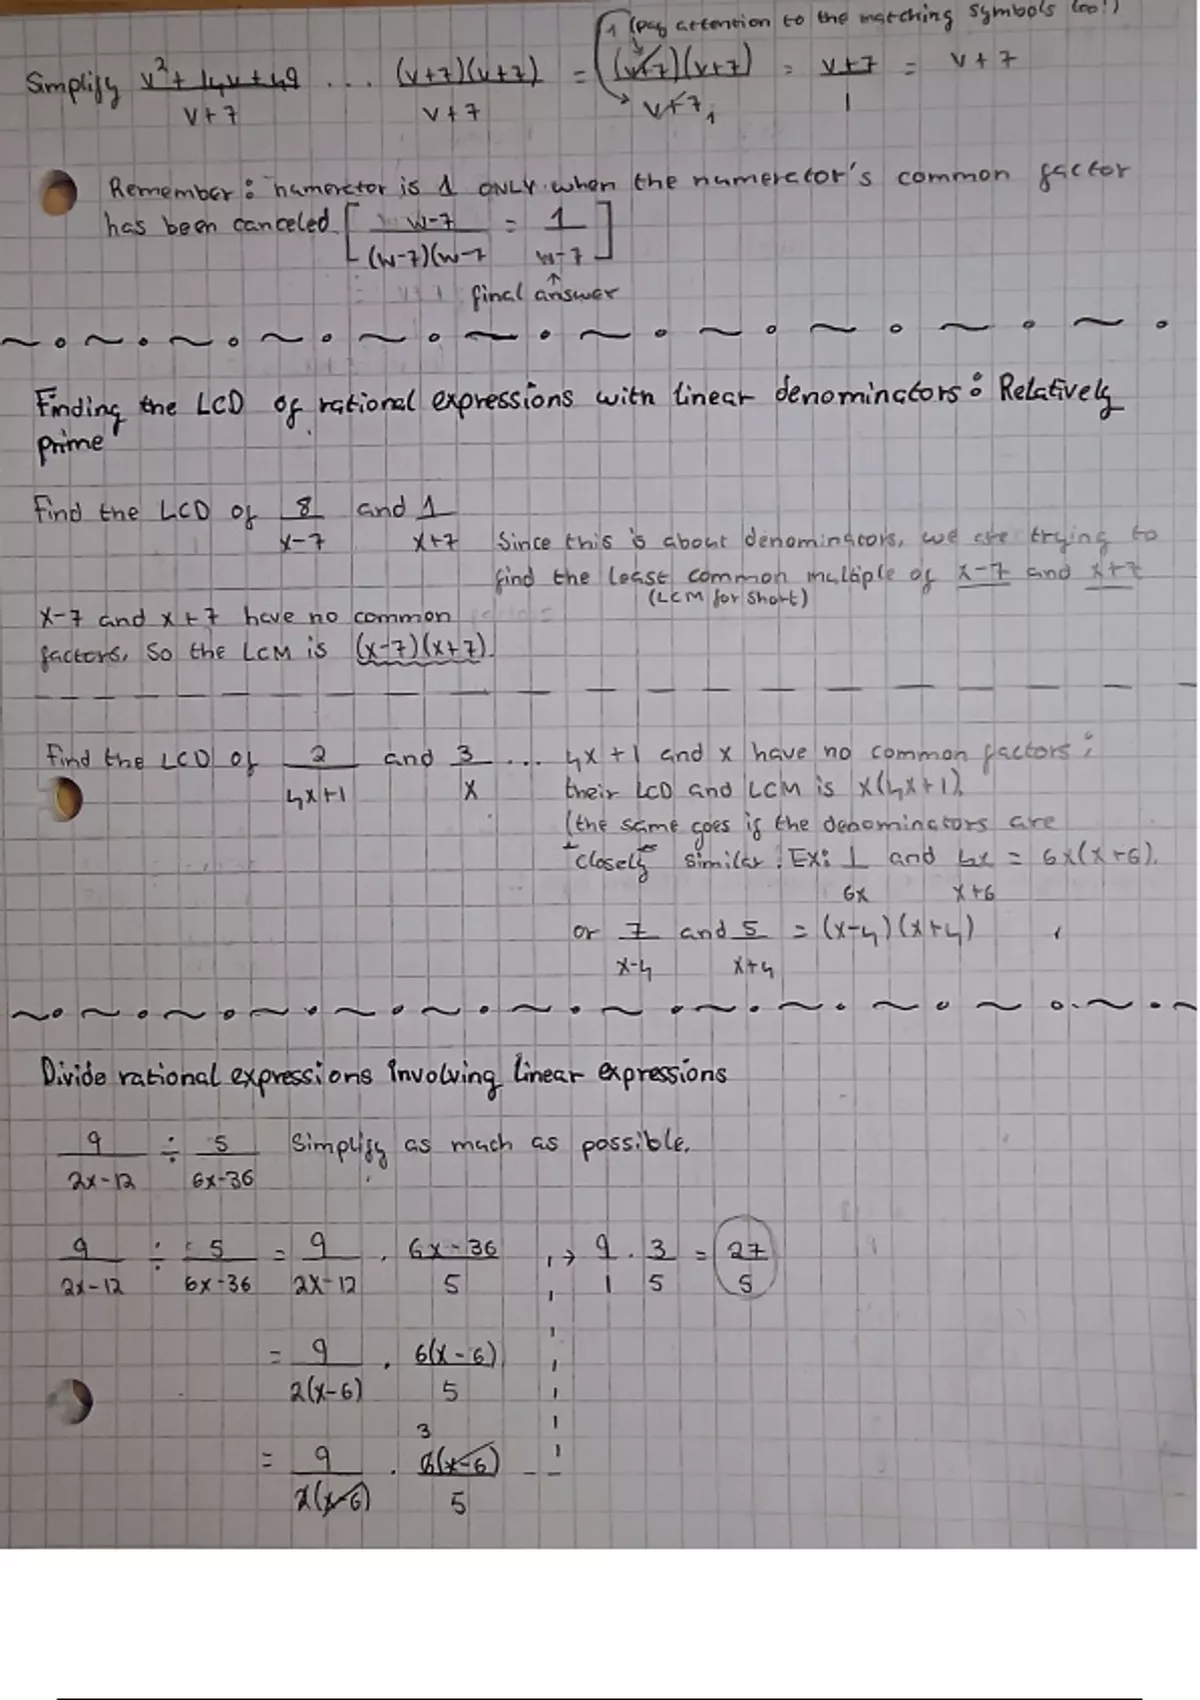 1 (pay attention to the matching symbols too!)
Simplify v²+14v+49 / v+7 ... (v+7)(v+7) / v+7 = (v+7)(v+7) / v+7 1 = v+7 / 1 = v+7
Remember: numerator is 1 ONLY when the numerator's common factor
has been canceled [ w-7 / (w-7)(w-7 = 1 / w-7 ]
↑
final answer
Finding the LCD of rational expressions with linear denominators: Relatively
prime
Find the LCD of 8 / x-7 and 1 / x+7
Since this is about denominators, we are trying to
find the least common multiple of x-7 and x+7
(LCM for short)
x-7 and x+7 have no common
factors, so the LCM is (x-7)(x+7).
Find the LCD of 2 / 4x+1 and 3 / x ... 4x+1 and x have no common factors;
their LCD and LCM is x(4x+1).
(the same goes if the denominators are
"closely" similar. Ex: 1 / 6x and 4x / x+6 = 6x(x+6).
or 7 / x-4 and 5 / x+4 = (x-4)(x+4)
Divide rational expressions involving linear expressions
9 / 2x-12 ÷ 5 / 6x-36 Simplify as much as possible.
9 / 2x-12 ÷ 5 / 6x-36 = 9 / 2x-12 · 6x-36 / 5 → 9 / 1 · 3 / 5 = 27 / 5
= 9 / 2(x-6) · 6(x-6) / 5
3
= 9 / 2(x-6) · 6(x-6) / 5